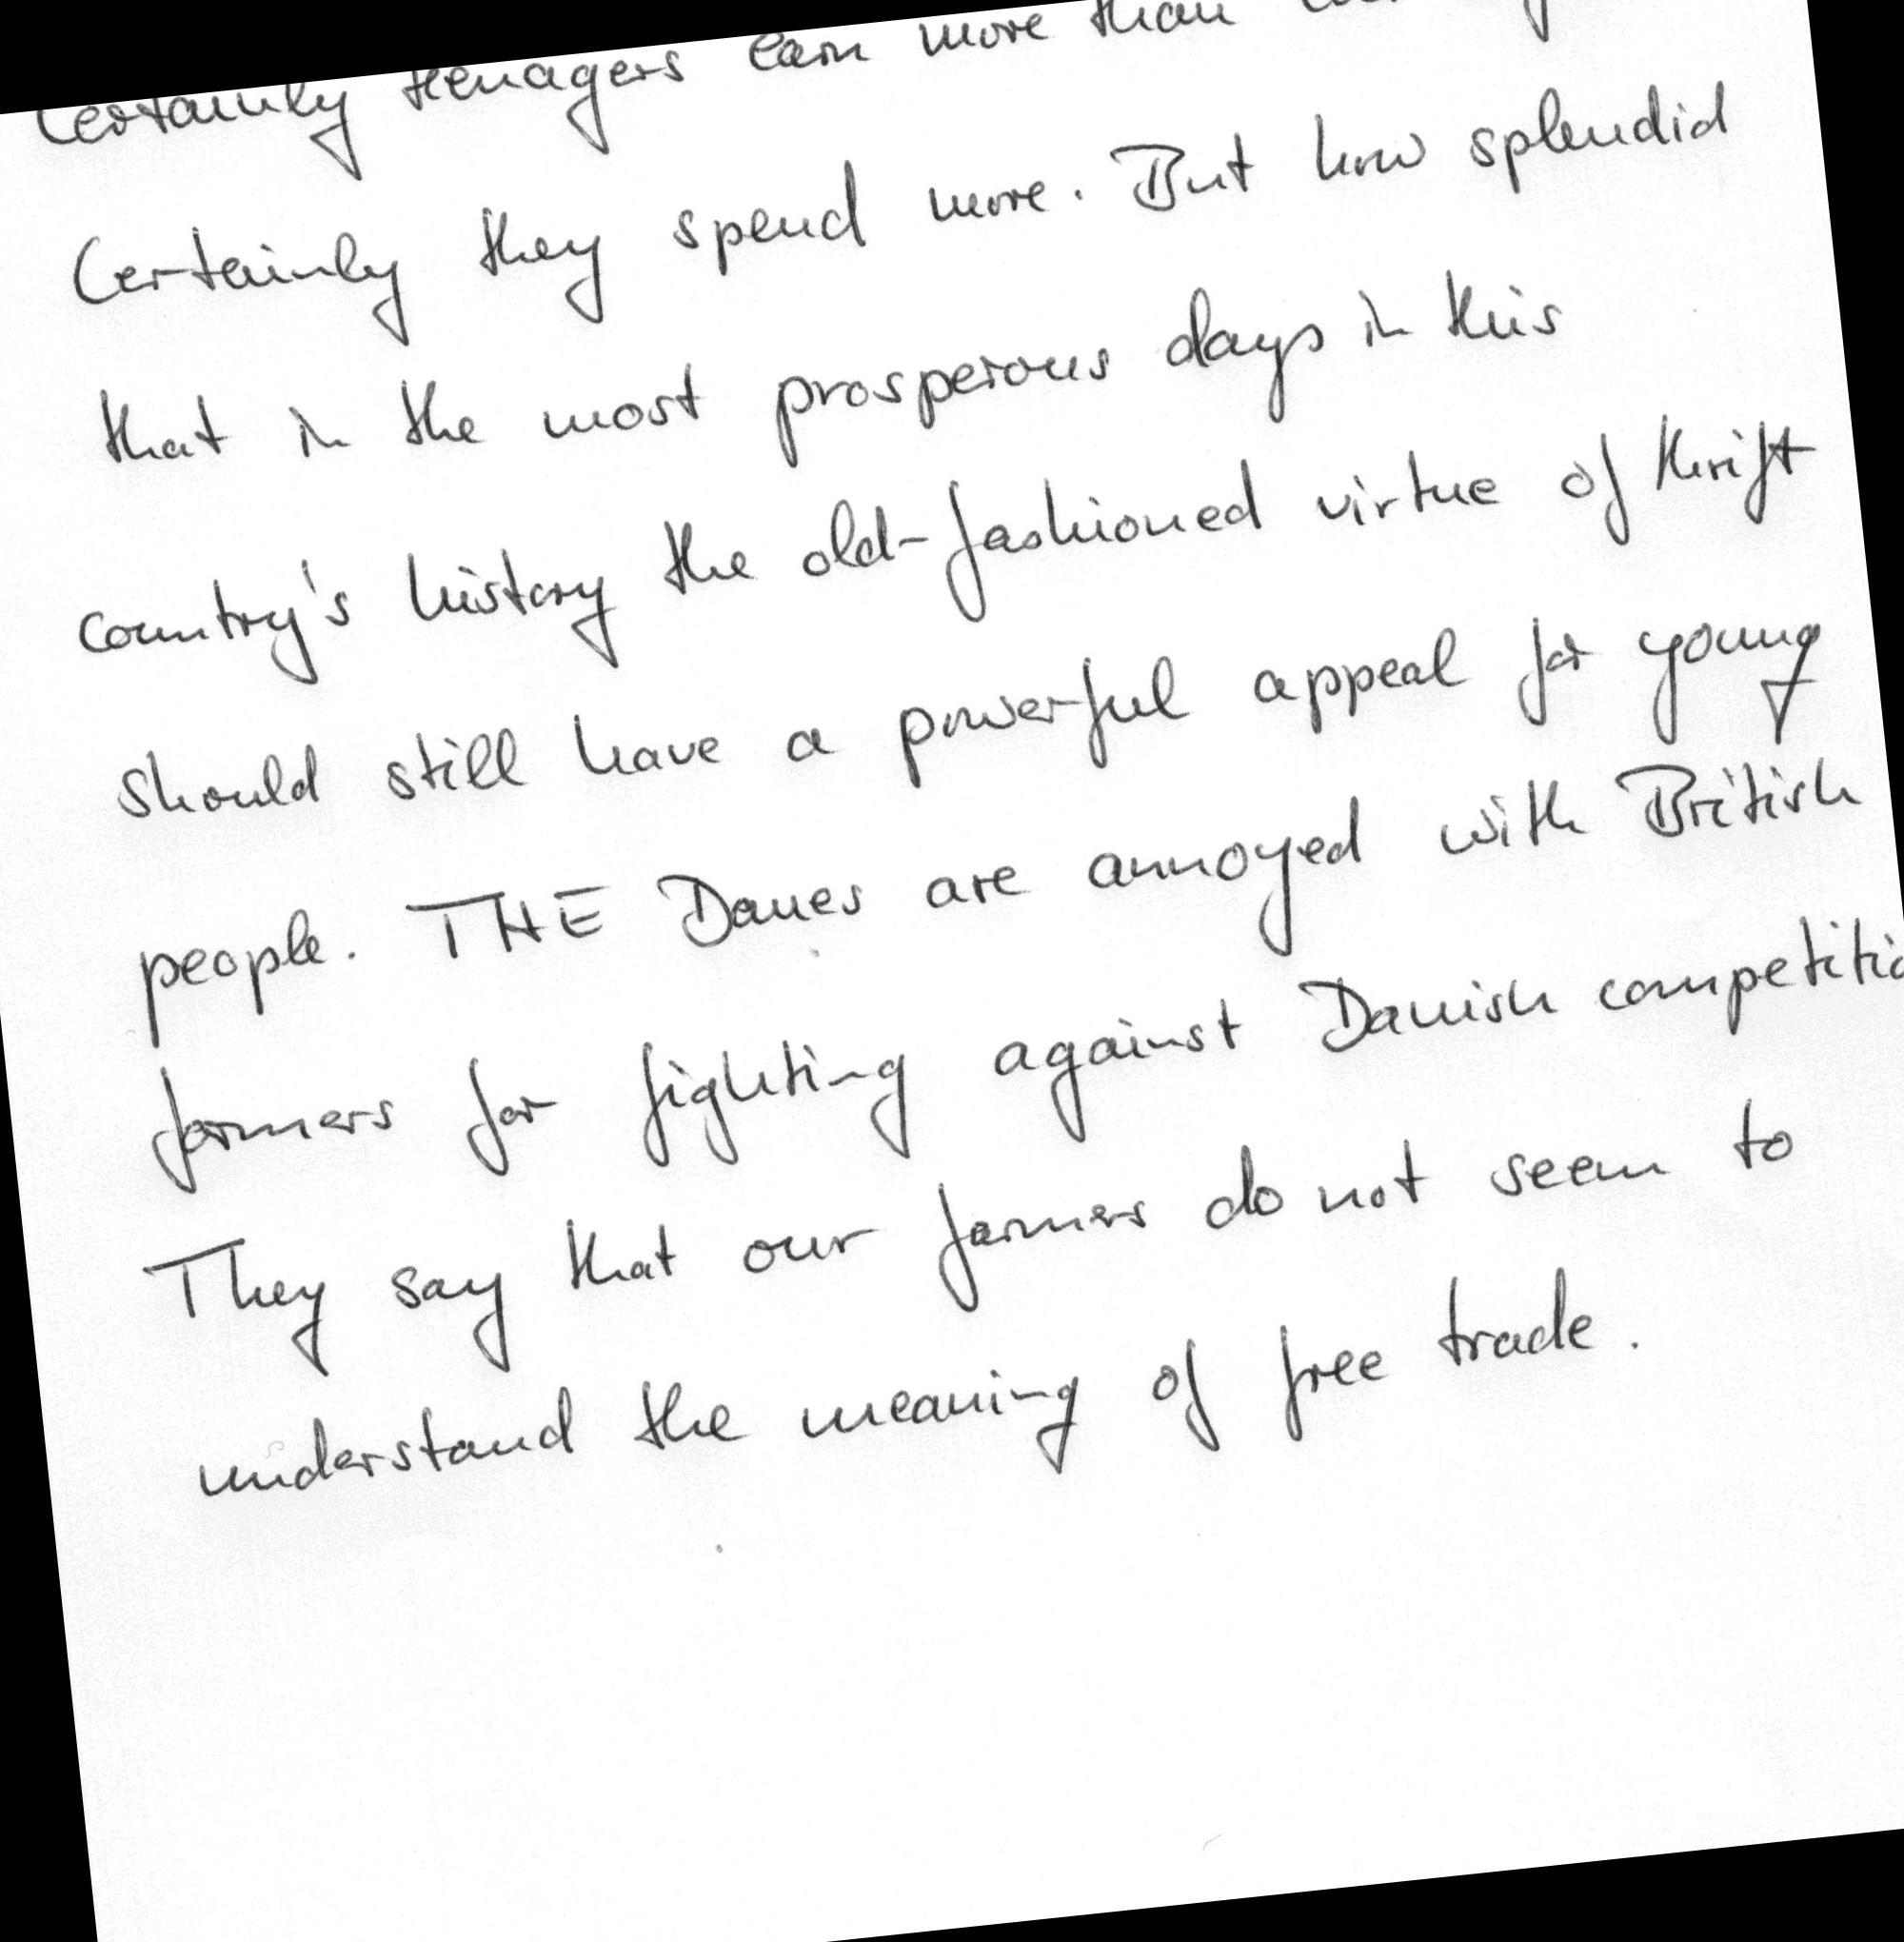 Certainly teenagers earn more than
Certainly they spend more. But how splendid
that in the most prosperous days in this
country's history the old-fashioned virtue of thrift
should still have a powerful appeal for young
people. THE Danes are annoyed with British
farmers for fighting against Danish competitio
They say that our farmers do not seem to
understand the meaning of free trade.